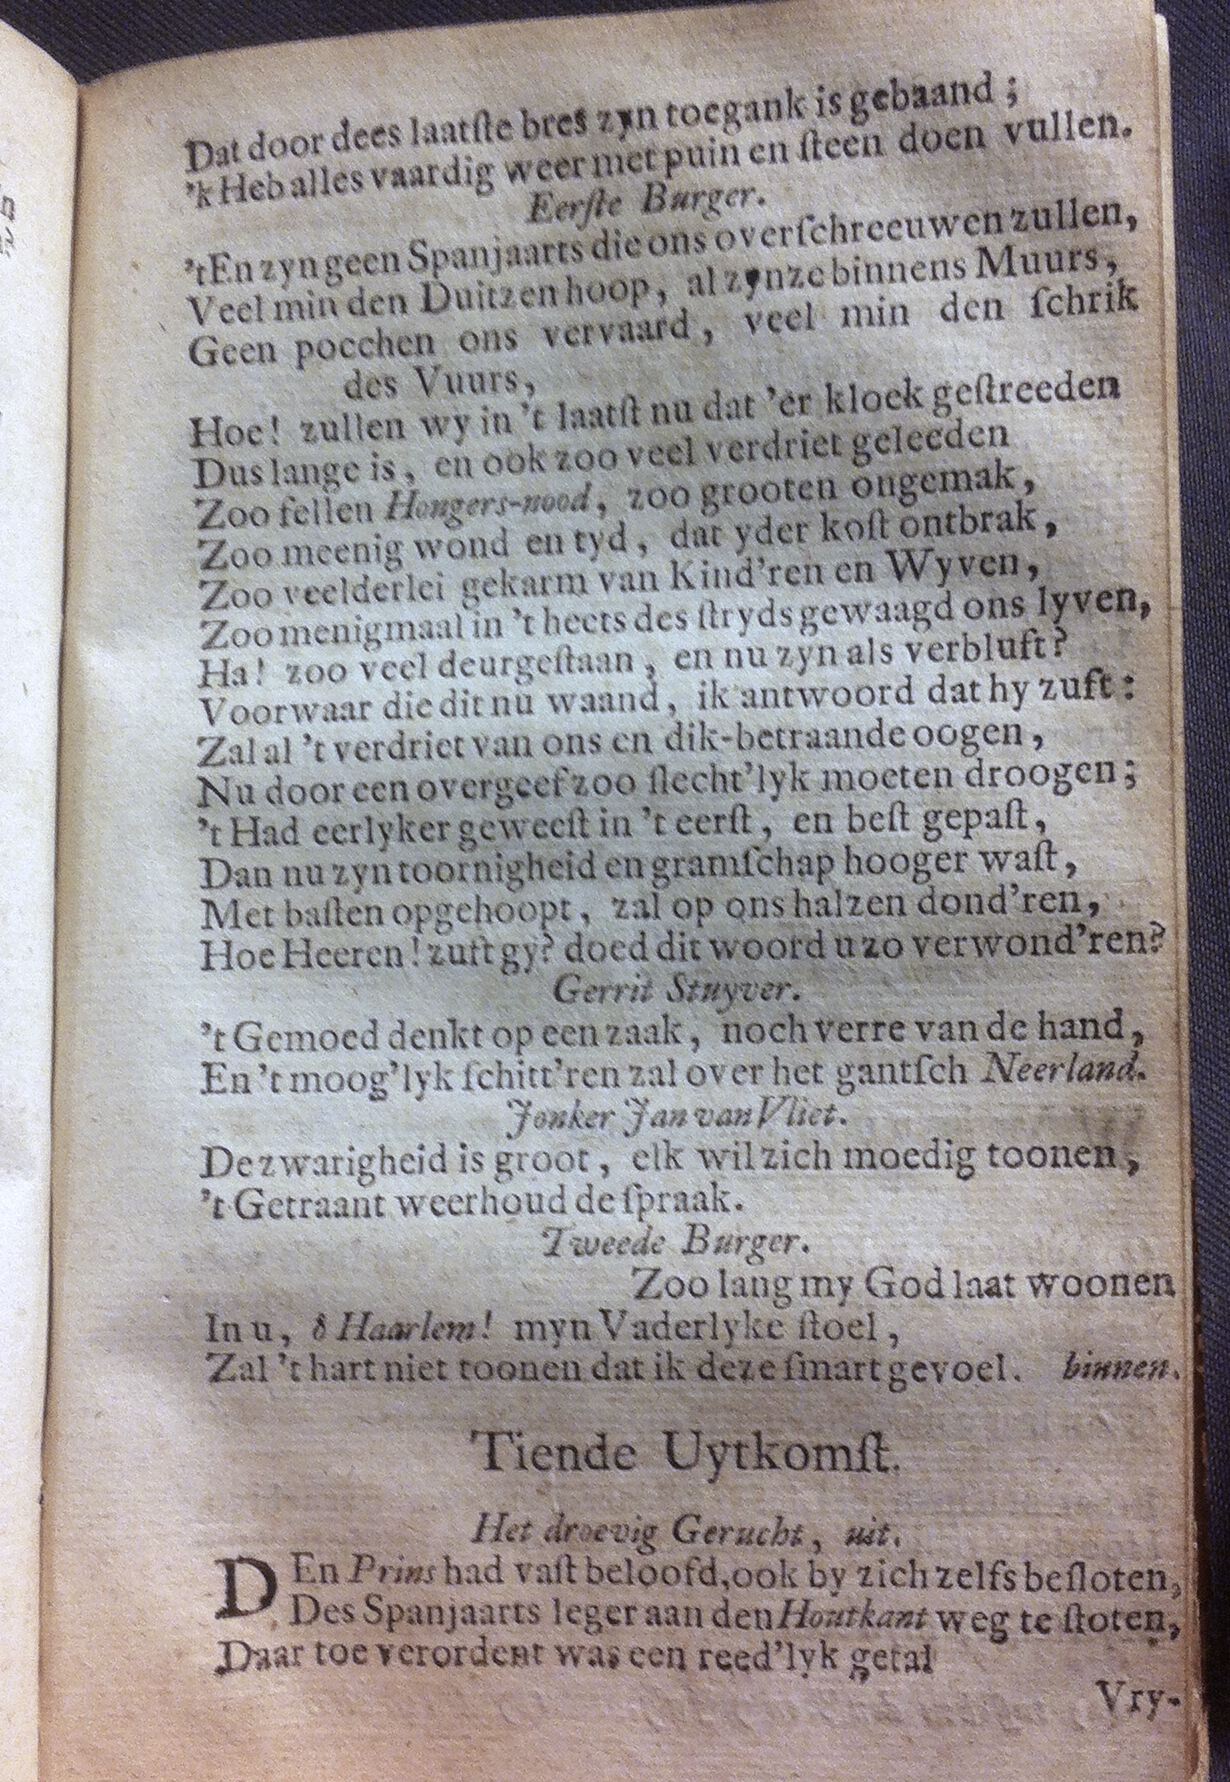 Dat door dees laatſte bres zyn toegank is gebaand;
'k Heb alles vaardig weer met puin en ſteen doen vullen.
Eerſte Burger.
't En zyn geen Spanjaarts die ons overſchreeuwen zullen,
Veel min den Duitzen hoop, al zynze binnens Muurs,
Geen pocchen ons vervaard, veel min den ſchrik
des Vuurs,
Hoe! zullen wy in 't laatſt nu dat 'er kloek geſtreeden
Dus lange is, en ook zoo veel verdriet geleeden
Zoo fellen Hongers-nood, zoo grooten ongemak,
Zoo meenig wond en tyd, dat yder koſt ontbrak,
Zoo veelderlei gekarm van Kind'ren en Wyven,
Zoo menigmaal in 't heets des ſtryds gewaagd ons lyven,
Ha! zoo veel deurgeſtaan, en nu zyn als verbluft?
Voorwaar die dit nu waand, ik antwoord dat hy zuft:
Zal al 't verdriet van ons en dik-betraande oogen,
Nu door een overgeef zoo ſlecht'lyk moeten droogen;
't Had eerlyker geweeſt in 't eerſt, en beſt gepaſt,
Dan nu zyn toornigheid en gramſchap hooger waſt,
Met baſten opgehoopt, zal op ons halzen dond'ren,
Hoe Heeren! zuft gy? doed dit woord u zo verwond'ren?
Gerrit Stuyver.
't Gemoed denkt op een zaak, noch verre van de hand,
En 't moog'lyk ſchitt'ren zal over het gantſch Neerland.
Jonker Jan van Vliet.
De zwarigheid is groot, elk wil zich moedig toonen,
't Getraant weerhoud de ſpraak.
Tweede Burger.
Zoo lang my God laat woonen
In u, ô Haarlem! myn Vaderlyke ſtoel,
Zal 't hart niet toonen dat ik deze ſmart gevoel. binnen.
Tiende Uytkomſt.
Het droevig Gerucht, uit.
DEn Prins had vaſt beloofd, ook by zich zelfs beſloten,
Des Spanjaarts leger aan den Houtkant weg te ſtoten,
Daar toe verordent was een reed'lyk getal
Vry-